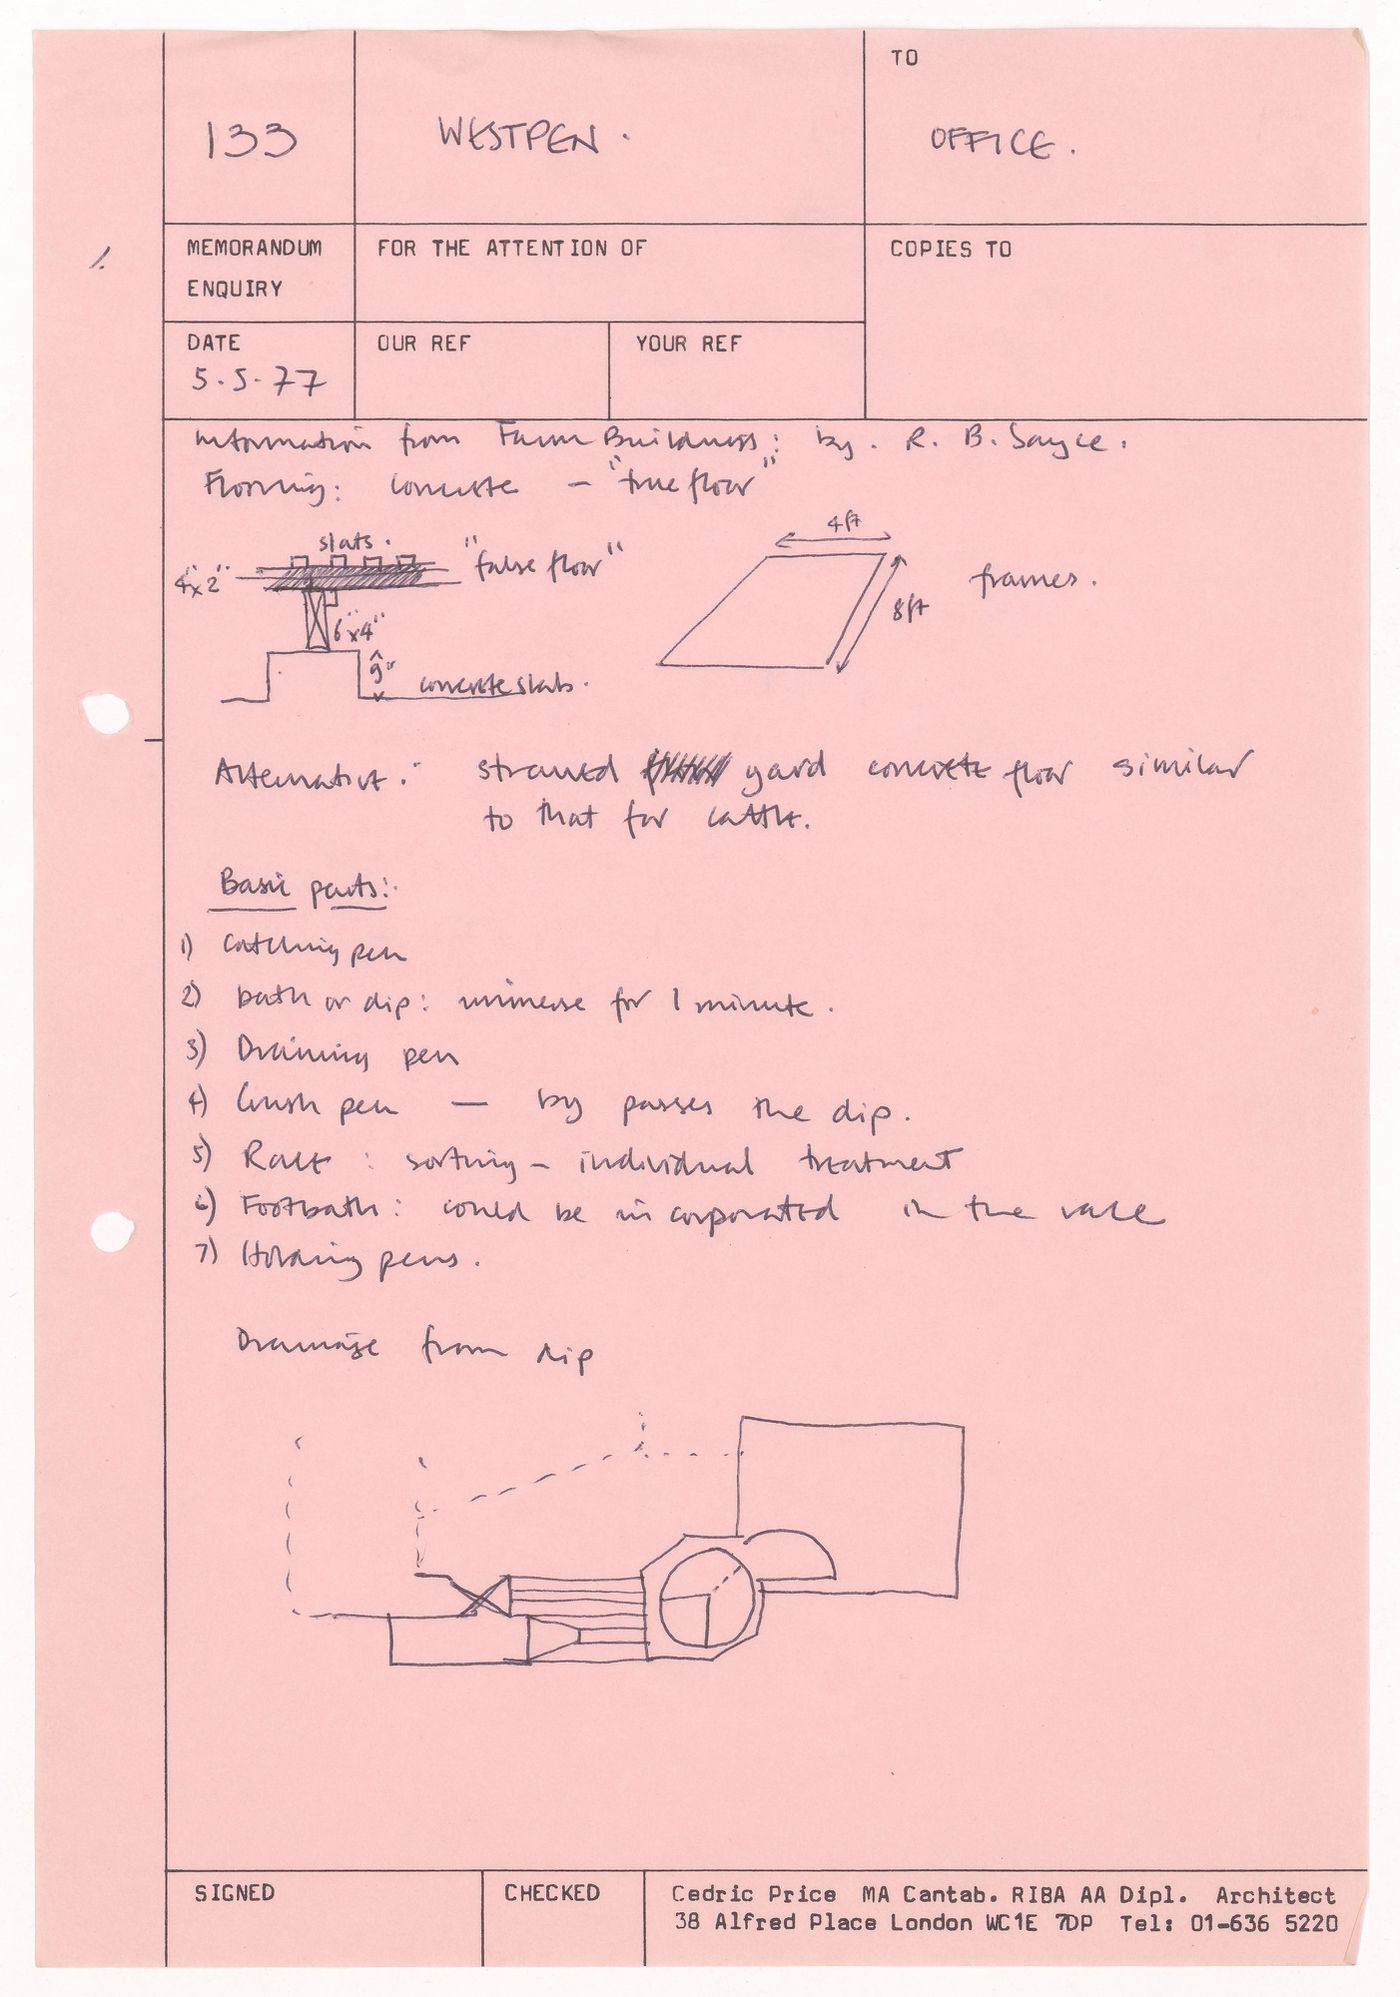 TO
133
WESTPEN.
OFFICE.
1.
MEMORANDUM
ENQUIRY
FOR THE ATTENTION OF
COPIES TO
DATE
5.5.77
OUR REF
YOUR REF
Information from Farm Buildings: by. R. B. Sayce.
Flooring: concrete - "true floor"
slats.
4"x2"
"false floor"
6"x4"
9"
concrete slab.
4ft
8ft
frames.
Alternative: strawed yard concrete floor similar
to that for cattle.
Basic parts:
1) Catching pen
2) bath or dip: immerse for 1 minute.
3) Draining pen
4) Crush pen — by passes the dip.
5) Race: sorting - individual treatment
6) Footbath: could be incorporated in the race
7) Holding pens.
Drainage from dip
SIGNED
CHECKED
Cedric Price MA Cantab. RIBA AA Dipl. Architect
38 Alfred Place London WC1E 7DP Tel: 01-636 5220